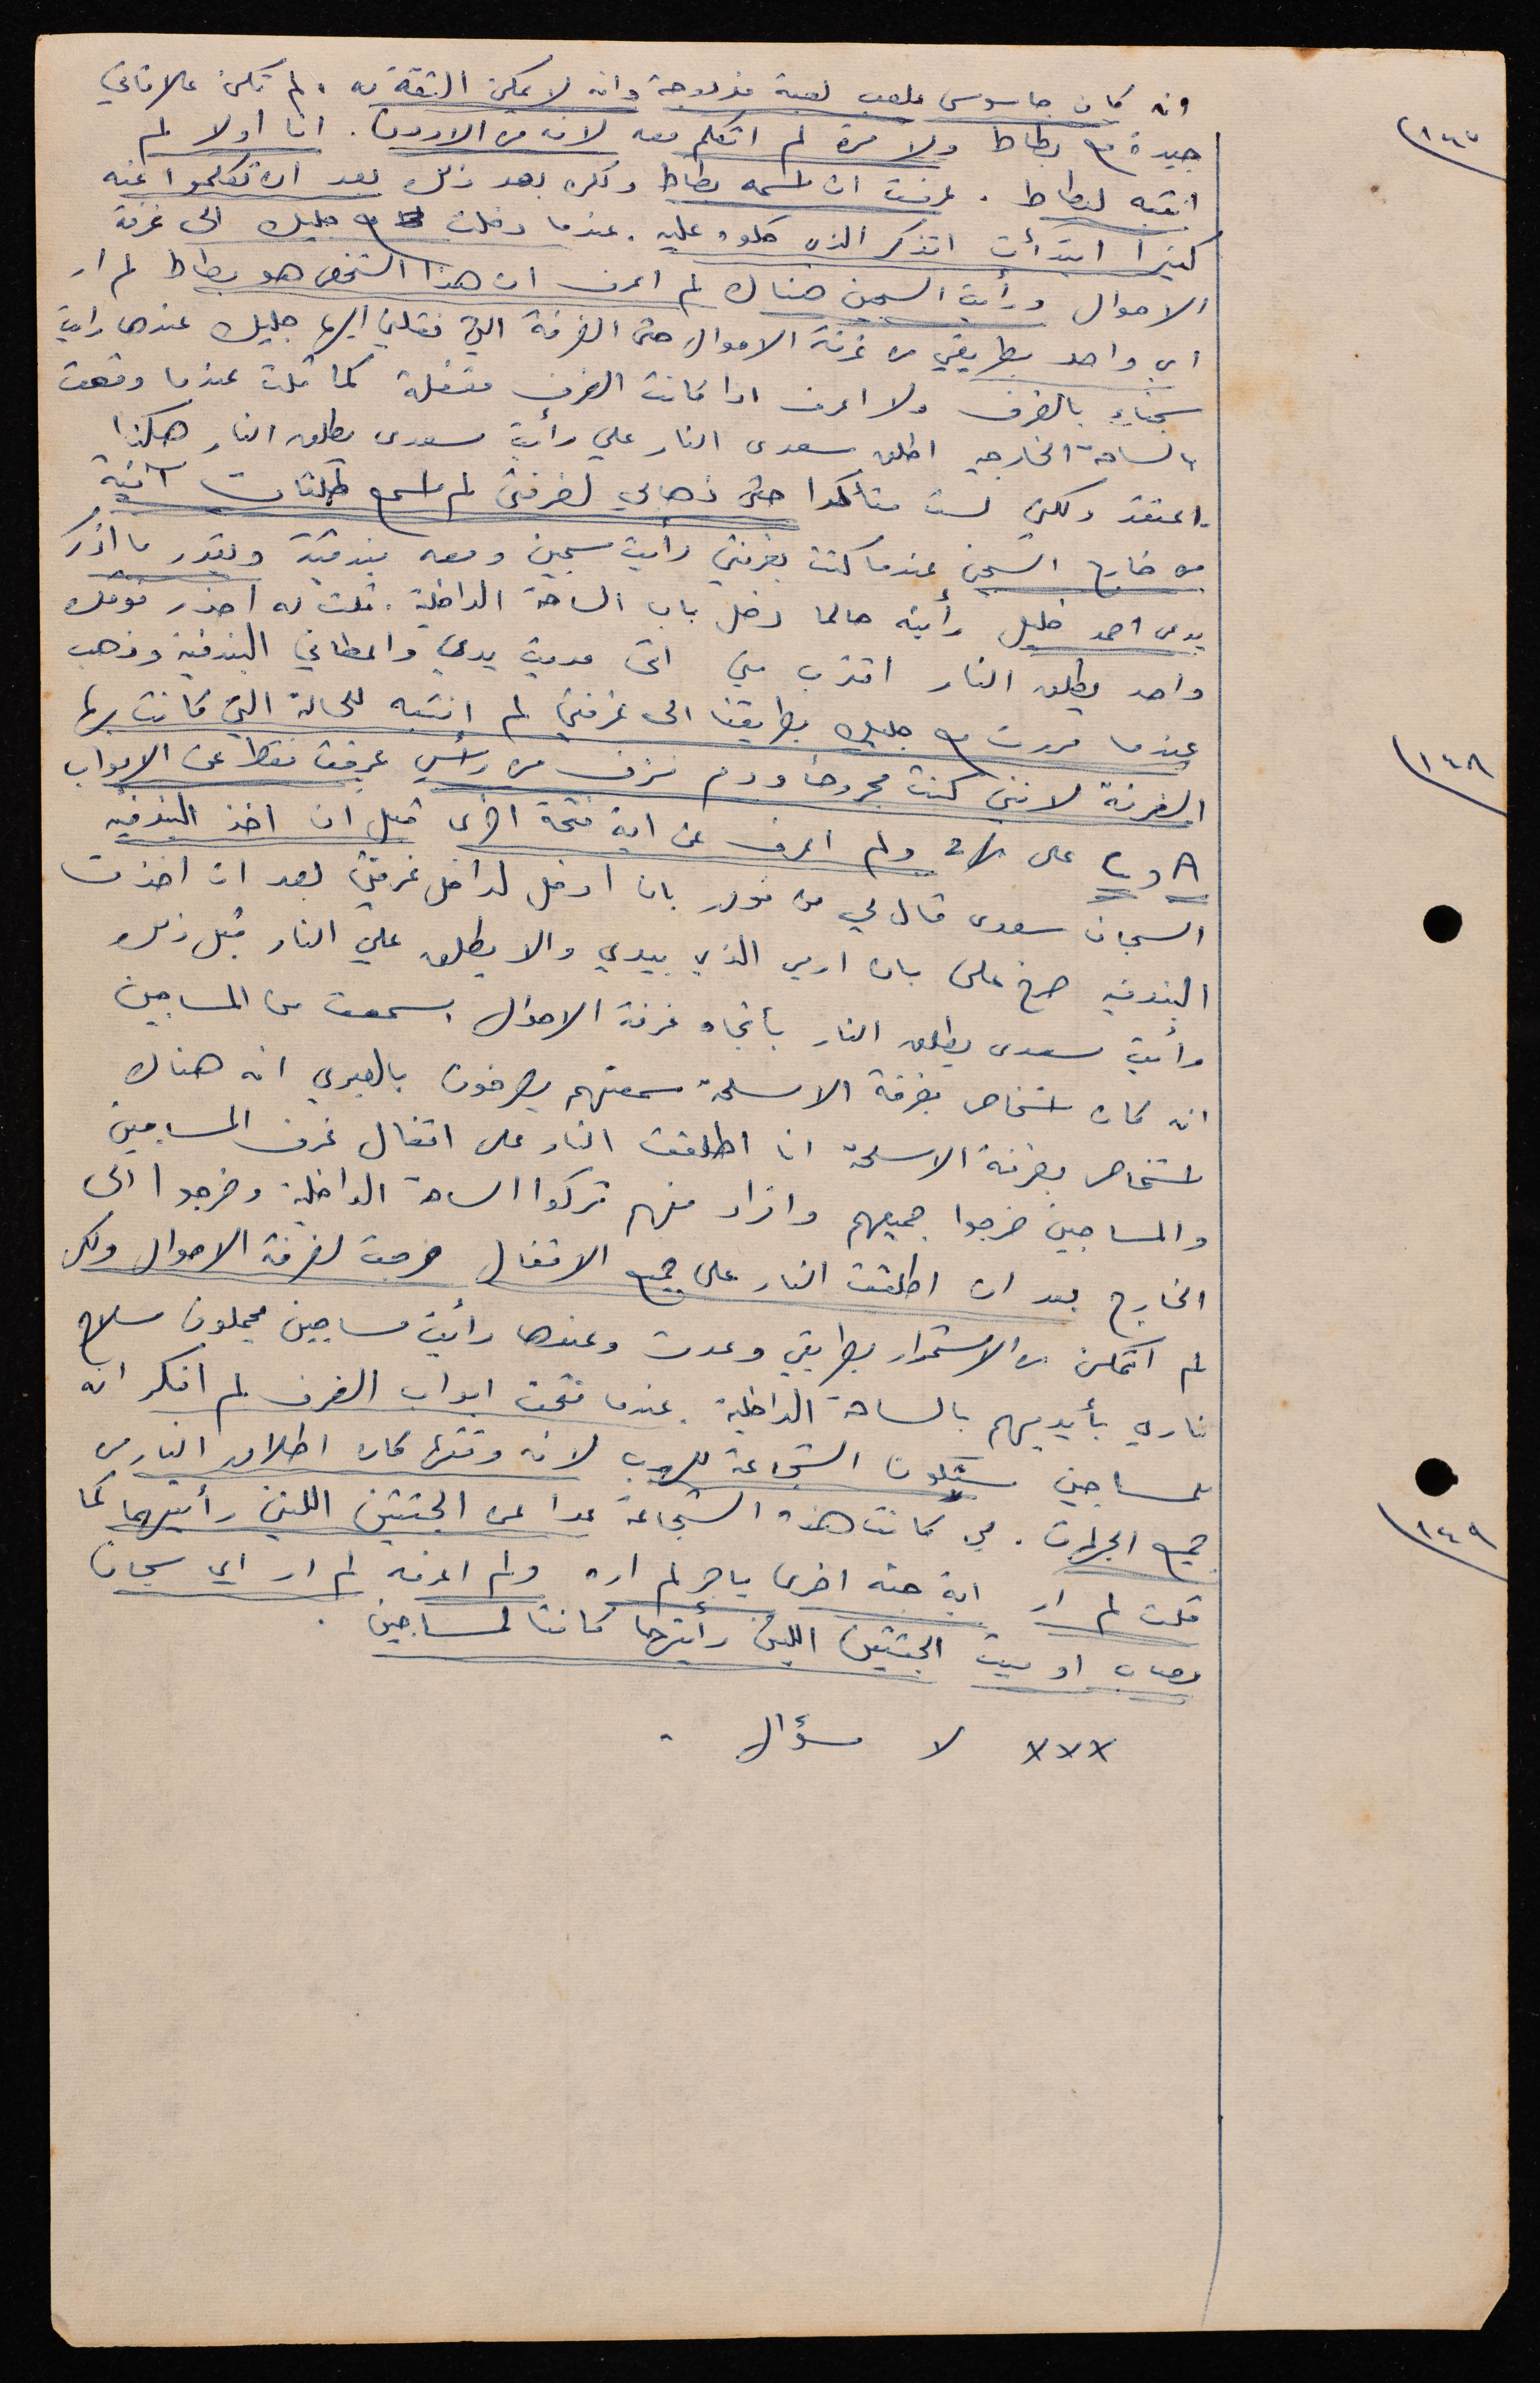 انه كان جاسوس ملعب لعبة مزدوجة وانه لا يمكن الثقة به . لم تكن علاقاتي
١٤٧
جيدة مع بطاط ولا مرة لم اتكلم معه لانه من الاردن . انا اولا لم
انتبه لبطاط . عرفت ان اسمه بطاط وذكره بعد ذلك بعد ان تكلموا عنه
كثيرا ابتدأت اتذكر الذي حكوه عليه . عندما دخلت مع جليك الى غرفة
الاموال ورأيت السجين هناك لم اعرف ان هذا الشخص هو بطاط لم ار
اي واحد بطريقي من غرفة الاموال حتى الغرفة التي نقلني اليها جليك عندها رايت
سجناء بالغرف ولا اعرف اذا كانت الغرف مقفلة كما قلت عندما وقعت
بالساحة الخارجيه اطلق سعدى النار علي رأيت سعدى يطلق النار هكذا
اعتقد ولكني لست متأكدا حتى ذهابي لغرفتي لم اسمع طلقات آتية
من خارج السجن عندما كنت بغرفتي رأيت سجين ومعه بندقية وبقدر ما اذكر
يدعى احمد خليل رأيته حالما دخل باب الساحة الداخلية . قلت له احذر فوقك
واحد يطلق النار اقترب مني الى مديت يدي واعطاني البندقية وذهب
١٤٨
عندما مررت مع جليك بطريقنا الى غرفتي لم انتبه للحالة التي كانت بها
الغرفة لانني كنت مجروحا ودم نزف من رأسي عرفت فقط عن الابواب
A و C على ولم اعرف عن اية فتحة اخرى قبل ان اخذ البندقيه
السجان سعدى قال لي من فوق بان ادخل لداخل غرفتي بعد ان اخذت
البندقيه صرخ علي بان ارمي الذي بيدي والا يطلق علي النار قبل ذلك
رأيت سعدى يطلق النار بأتجاه غرفة الاموال . سمعت من المساجين
انه كان اشخاص بغرفة الاسلحة سمعتهم يصرخون بالعبري انه هناك
اشخاص بغرفة الاسلحة انا اطلقت النار على اقفال غرف المساجين
والمساجين خرجوا جميعهم وافراد منهم تركوا الساحة الداخلية وخرجوا الى
الخارج بعد ان اطلقت النار على جميع الاقفال خرجت لغرفة الاموال ولكن
لم اتمكن من الاستمرار بطريقي وعدت وعندها رأيت مساجين يحملون سلاح
ناري بأيديهم بالساحة الداخلية . عندما فتحت ابواب الغرف لم افكر انه
للمساجين ستكون الشجاعة للهرب لانه وقتها كان اطلاق النار من
١٤٩
جميع الجهات . لي كانت هذه الشجاعة عدا عن الجثتين اللتين رأيتهما كما
قلت لم ار اية جثه اخرى ياجر لم اره ولم اعرفه لم ار اي سجان
مصاب او ميت الجثتين اللتين رأيتهما كانتا لمساجين .
xxx لا سؤال .